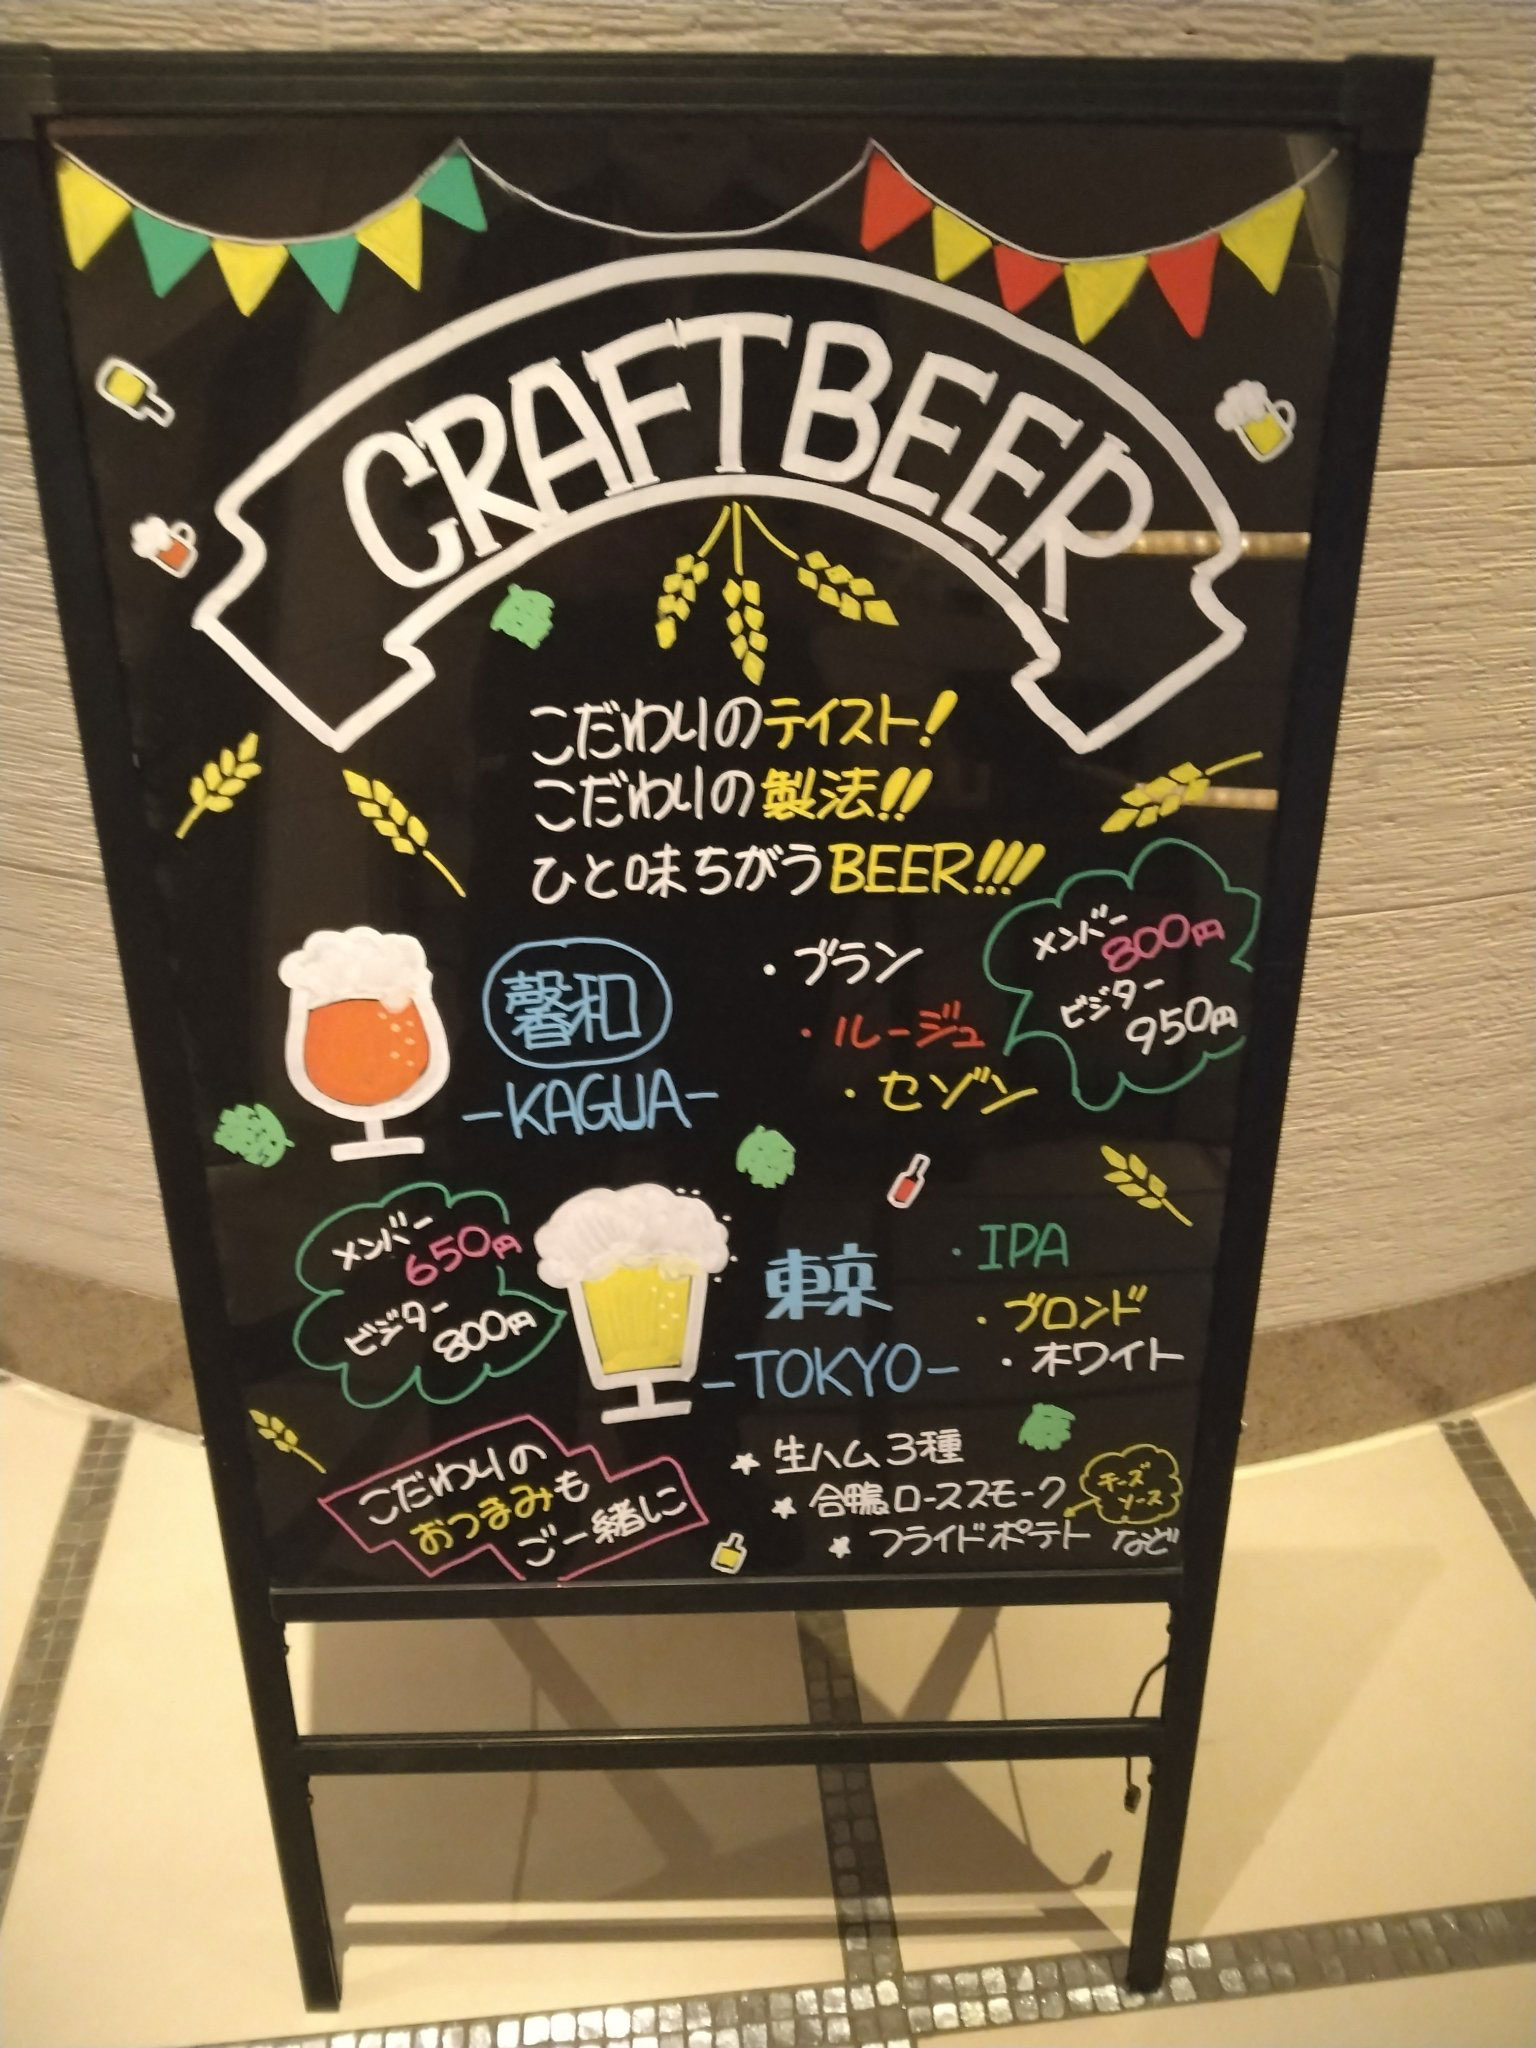 CRAFTBEER
こだわりのテイスト!
こだわりの製法!!
ひと味ちがうBEER!!!
馨和
-KAGUA-
・ブラン
・ルージュ
・セゾン
メンバー
800円
ビジター
950円
メンバー
650円
ビジター
800円
東京
-TOKYO-
・IPA
・ブロンド
・ホワイト
こだわりの
おつまみも
ご一緒に
★ 生ハム3種
★ 合鴨ローススモーク
★ フライドポテト など
チーズ
ソース